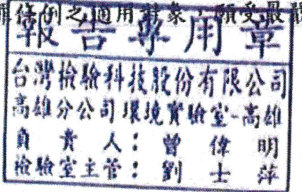 罪條例之適用對象，願受最嚴
報告專用章
台灣檢驗科技股份有限公司
高雄分公司環境實驗室-高雄
負責人：曾偉明
檢驗室主管：劉士萍